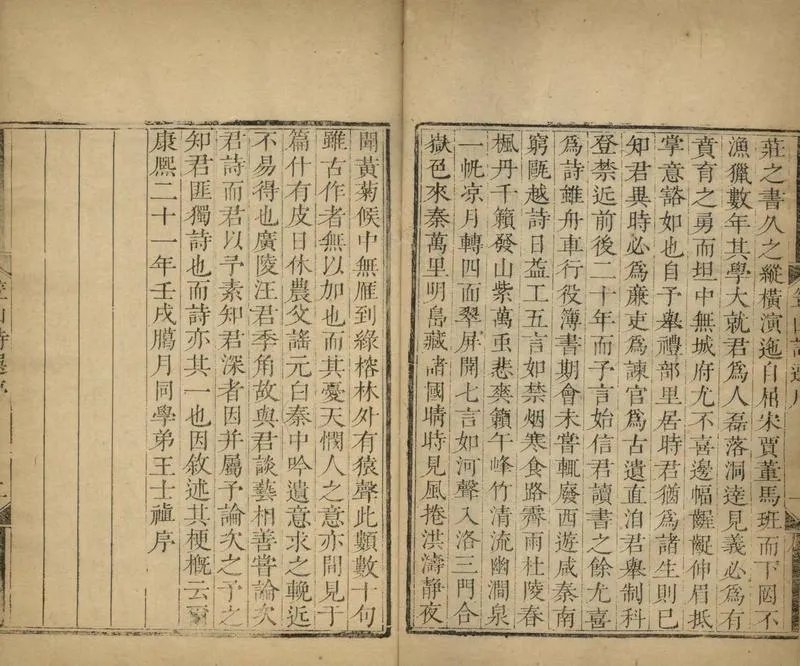 莊之書久之縱橫演迤自屈宋賈董馬班而下罔不
漁獵數年其學大就君為人磊落洞達見義必為有
賁育之勇而坦中無城府尤不喜邊幅齷齪伸眉抵
掌意豁如也自予舉禮部里居時君猶為諸生則已
知君異時必為廉吏為諫官為古遺直洎君舉制科
登禁近前後二十年而予言始信君讀書之餘尤喜
為詩雖舟車行役簿書期會未嘗輒廢西遊咸秦南
窮甌越詩日益工五言如禁烟寒食路霽雨杜陵春
楓丹千籟發山紫萬重悲爽籟午峰竹清流幽澗泉
一帆凉月轉四面翠屏開七言如河聲入洛三門合
嶽色來秦萬里明島藏諸國晴時見風捲洪濤靜夜
聞黃菊候中無雁到綠榕林外有猿聲此類數十句
雖古作者無以加也而其憂天憫人之意亦間見于
篇什有皮日休農父謠元白秦中吟遺意求之輓近
不易得也廣陵汪君季角故與君談藝相善嘗論次
君詩而君以予素知君深者因并屬予論次之予之
知君匪獨詩也而詩亦其一也因敘述其梗概云爾
康熙二十一年壬戌臈月同學弟王士禛序